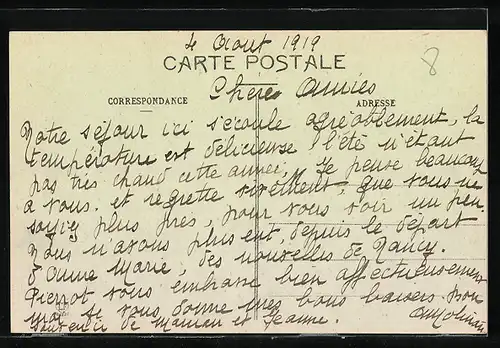 4 Aout 1919
CARTE POSTALE
8
Chères Amies
CORRESPONDANCE
ADRESSE
Notre séjour ici s'écoule agréablement, la
température est délicieuse l'été n'étant
pas très chaud cette année, je pense beaucoup
à vous. et regrette vivement, que vous ne
soyiez plus près, pour vous voir un peu.
Nous n'avons plus eut, depuis le départ
d'Anne Marie, des nouvelles de Nancy.
Pierrot vous embrasse bien affectueusement
moi je vous donne mes bons baisers. bon
souvenir de maman et Jeanne.